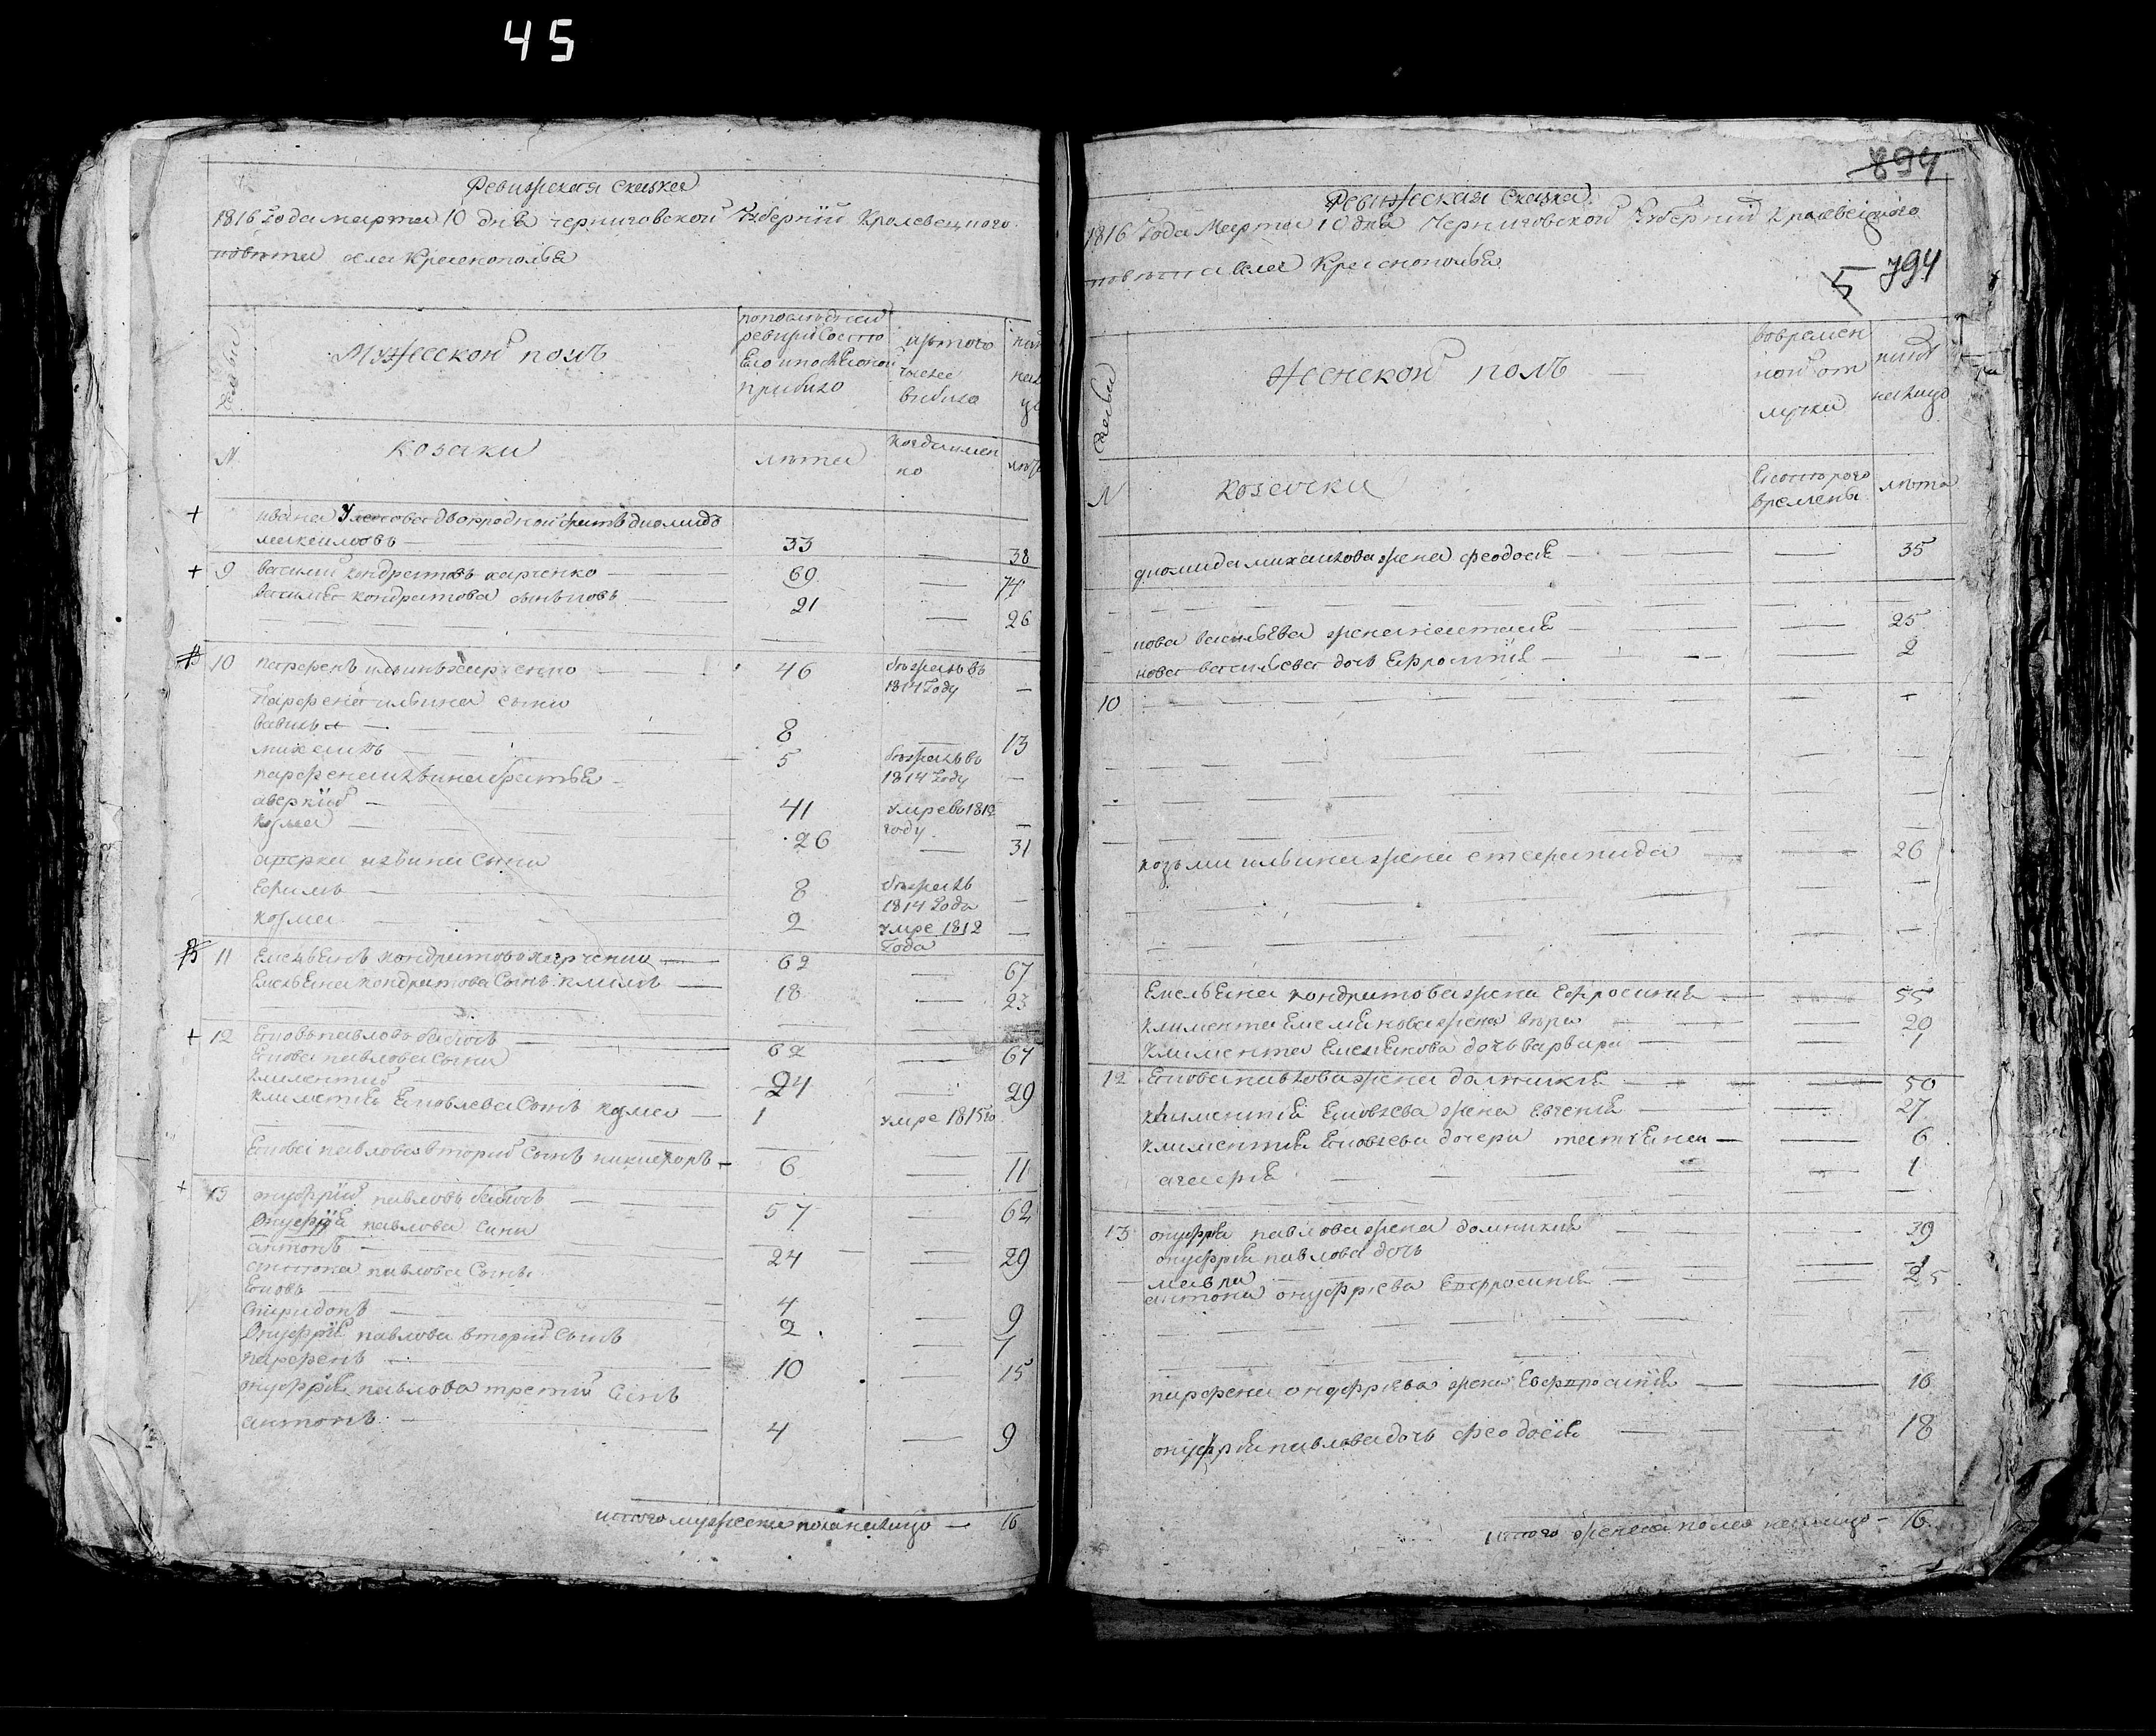 45
Ревизская сказка
1816 Года марта 10 дня Черниговской Губернїи Кролевецкого
повѣта села Краснополья
Семьи
Мужеской полъ
по последней
ревизїи состо
яло и после оной
прибыло
изъ того
числа
выбыло
N
козаки
лѣта
когда имен
но
лѣта
ивана двоюродной братъ диомидъ
33 38
+ 9 василий кондратовъ харченко 69 74
василія кондратова сынъ іовъ 21 26
10 парфенъ ильинъ харченко 46 бѣжалъ въ
1814 Году
Парфена ильина сыны
вавилъ 8 13
михаилъ 5 бѣжалъ въ
парфена ильина братья 1814 Году
аверкїй 41 умре въ 1812
козма 26 году 31
аверки ильина сыны
Ефимъ 8 бѣжалъ
1814 Года
козма 2 умре 1812
Года
11 Емельянъ кондратовъ харченко 62 67
Емельяна кондратова сынъ климъ 18 23
+ 12 Яковъ павловъ 62 67
Якова павлова сыны
климентїй 24 29
климентїя Яковлева сынъ козма 1 умре 1815 го
Якова павлова вторий сынъ никифоръ 6 11
+ 13 онуфрїй павловъ 57 62
Онуфрїя павлова сыны
антонъ 24 29
антона павлова сыны
Яковъ 4 9
спиридонъ 2 7
Онуфрїя павлова вторий сынъ
парфенъ 10 15
онуфрїя павлова третий сынъ
антонъ 4 9
итого мужеска пола на лицо 16
894
Ревизская сказка
1816 Года Марта 10 дня Черниговской Губернїи Кролевецкого
повѣта села Краснополья
5 794
Семьи
Женской полъ
вовремен
ной от
лучки
нынѣ
налицо
N
козачки
с которого
времены
лѣта
диомида михаилова жена феодосія 35
іова васильева жена наталія 25
іова васильева дочь Ефросинія 2
10
козьми ильина жена степанида 26
Емельяна кондратова жена Ефросинія 55
климента Емельянова жена вѣра 20
климента Емельянова дочь варвара 1
12 Якова павлова жена домникія 50
климентїя Яковлева жена Евгенія 27
климентїя Яковлева дочери татїяна 6
агафія 1
13 онуфрія павлова жена домникія 39
онуфрїя павлова дочь
мавра 1
антона онуфрієва Ефросинія 25
парфена онуфрієва жена Евфросинія 16
онуфрїя павлова дочь феодосїя 18
итого женска пола налицо 16